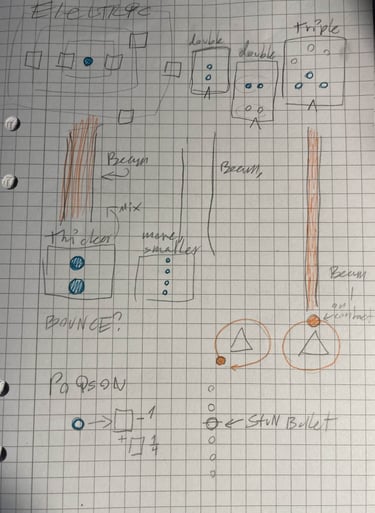 ELECTRIC
double
double
triple
Beam
Beam,
Mix
thicker
more,
smaller
Beam
on
contact
BOUNCE?
POISON
-1
+ 1/4
Stun Bullet